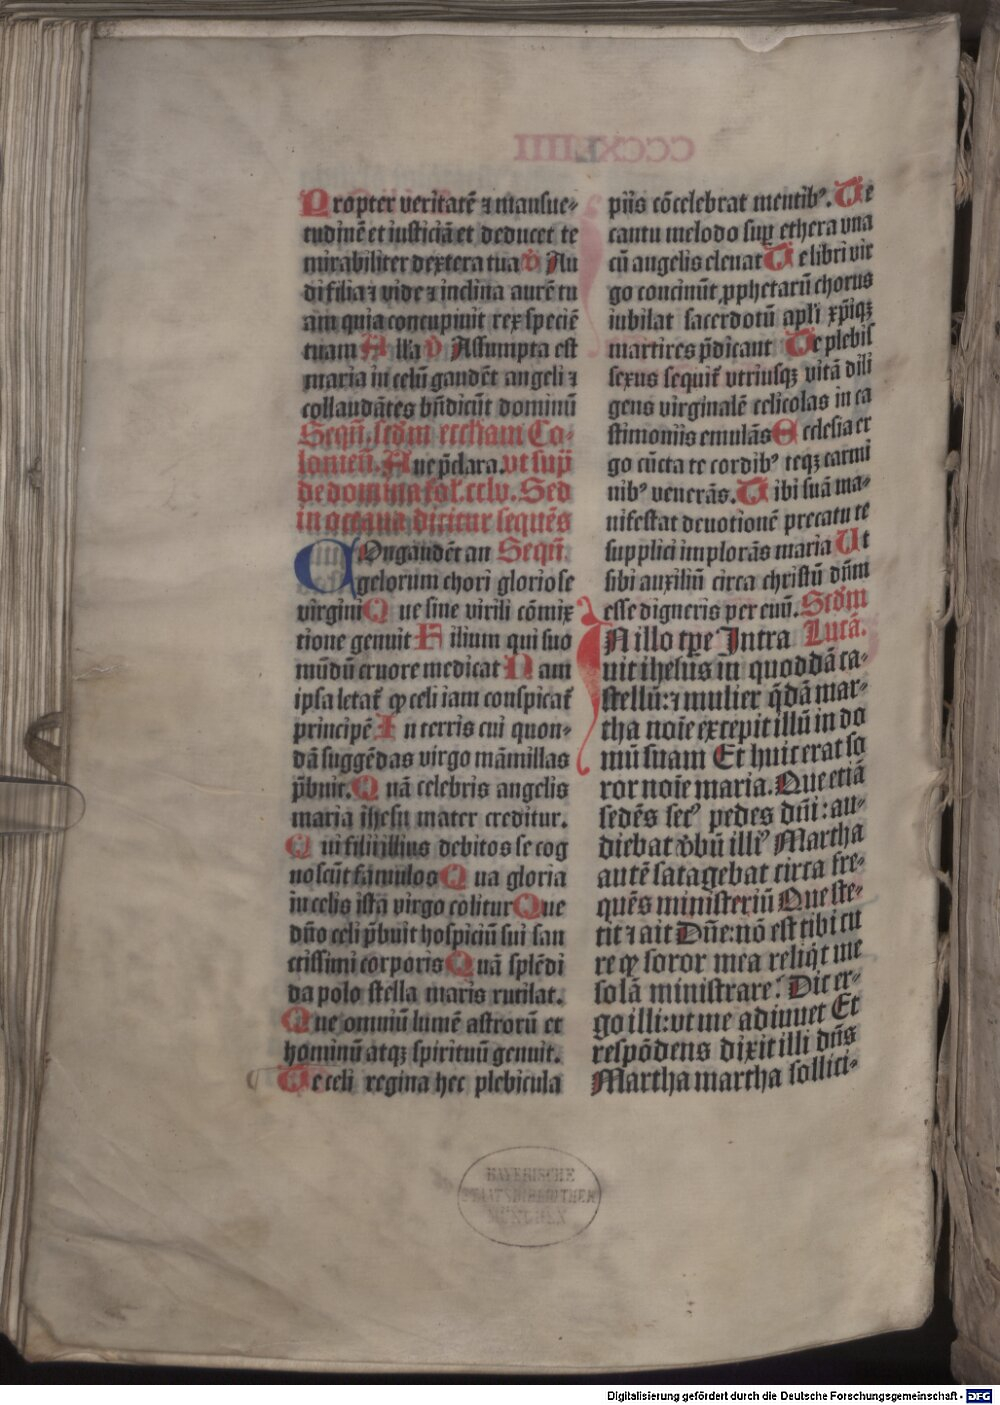 Propter veritatē ⁊ mansue-
tudinē et iusticiā et deducet te
mirabiliter dextera tua ꝟ Au
di filia ⁊ vide ⁊ inclina aurē tu
am quia concupiuit rex speciē
tuam Alla ꝟ Assumpta est
maria in celū gaudēt angeli ⁊
collaudātes bn̄dicūt dominū
Sequē. scdm eccliam Co-
lonien̄. Aue p̄clara. vt sup̄
de domina fol. cclv. Sed
in octaua dicitur sequēs
COngaudēt an Sequē.
gelorum chori gloriose
virgini Que sine virili cōmix
tione genuit Filium qui suo
mūdū cruore medicat Nam
ipsa letat̄ ꝙ celi iam conspicat̄
principē In terris cui quon-
dā suggēdas virgo māmillas
p̄buit. Quā celebris angelis
maria ihesu mater creditur.
Qui filii illius debitos se cog
noscūt famulos Qua gloria
in celis ista virgo colitur Que
dn̄o celi p̄buit hospiciū sui san
ctissimi corporis Quā splēdi
da polo stella maris rutilat.
Que omniū lumē astrorū et
hominū atqꝫ spirituū genuit.
Te celi regina hec plebicula
piis cōcelebrat mentibꝰ. Te
cantu melodo sup̄ ethera vna
cū angelis eleuat Te libri vir
go concinūt ꝓphetarū chorus
iubilat sacerdotū apl̄i xp̄iqꝫ
martires p̄dicant Te plebis
sexus sequit̄ vtriusqꝫ vitā dili
gens virginalē celicolas in ca
stimoniis emulās Ecclesia er
go cūcta te cordibꝰ teqꝫ carmi
nibꝰ venerās. Tibi suā ma-
nifestat deuotionē precatu te
supplici implorās maria Ut
sibi auxiliū circa christū dn̄m
esse digneris per euū. Scdm
IN illo tp̄e Intra Lucā.
uit ihesus in quoddā ca-
stellū: ⁊ mulier q̄dā mar-
tha noīe excepit illū in do
mū suam Et huic erat so
ror noīe maria. Que etiā
sedēs secꝰ pedes dn̄i: au-
diebat ꝟbū illiꝰ Martha
autē satagebat circa fre-
quēs ministeriū Que ste-
tit ⁊ ait Dn̄e: nō est tibi cu
re ꝙ soror mea reliq̇t me
solā ministrare? Dic er-
go illi: vt me adiuuet Et
respōdens dixit illi dn̄s
Martha martha sollici-
CCCXLIIII
BAYERISCHE
STAATSBIBLIOTHEK
MÜNCHEN
Digitalisierung gefördert durch die Deutsche Forschungsgemeinschaft - DFG